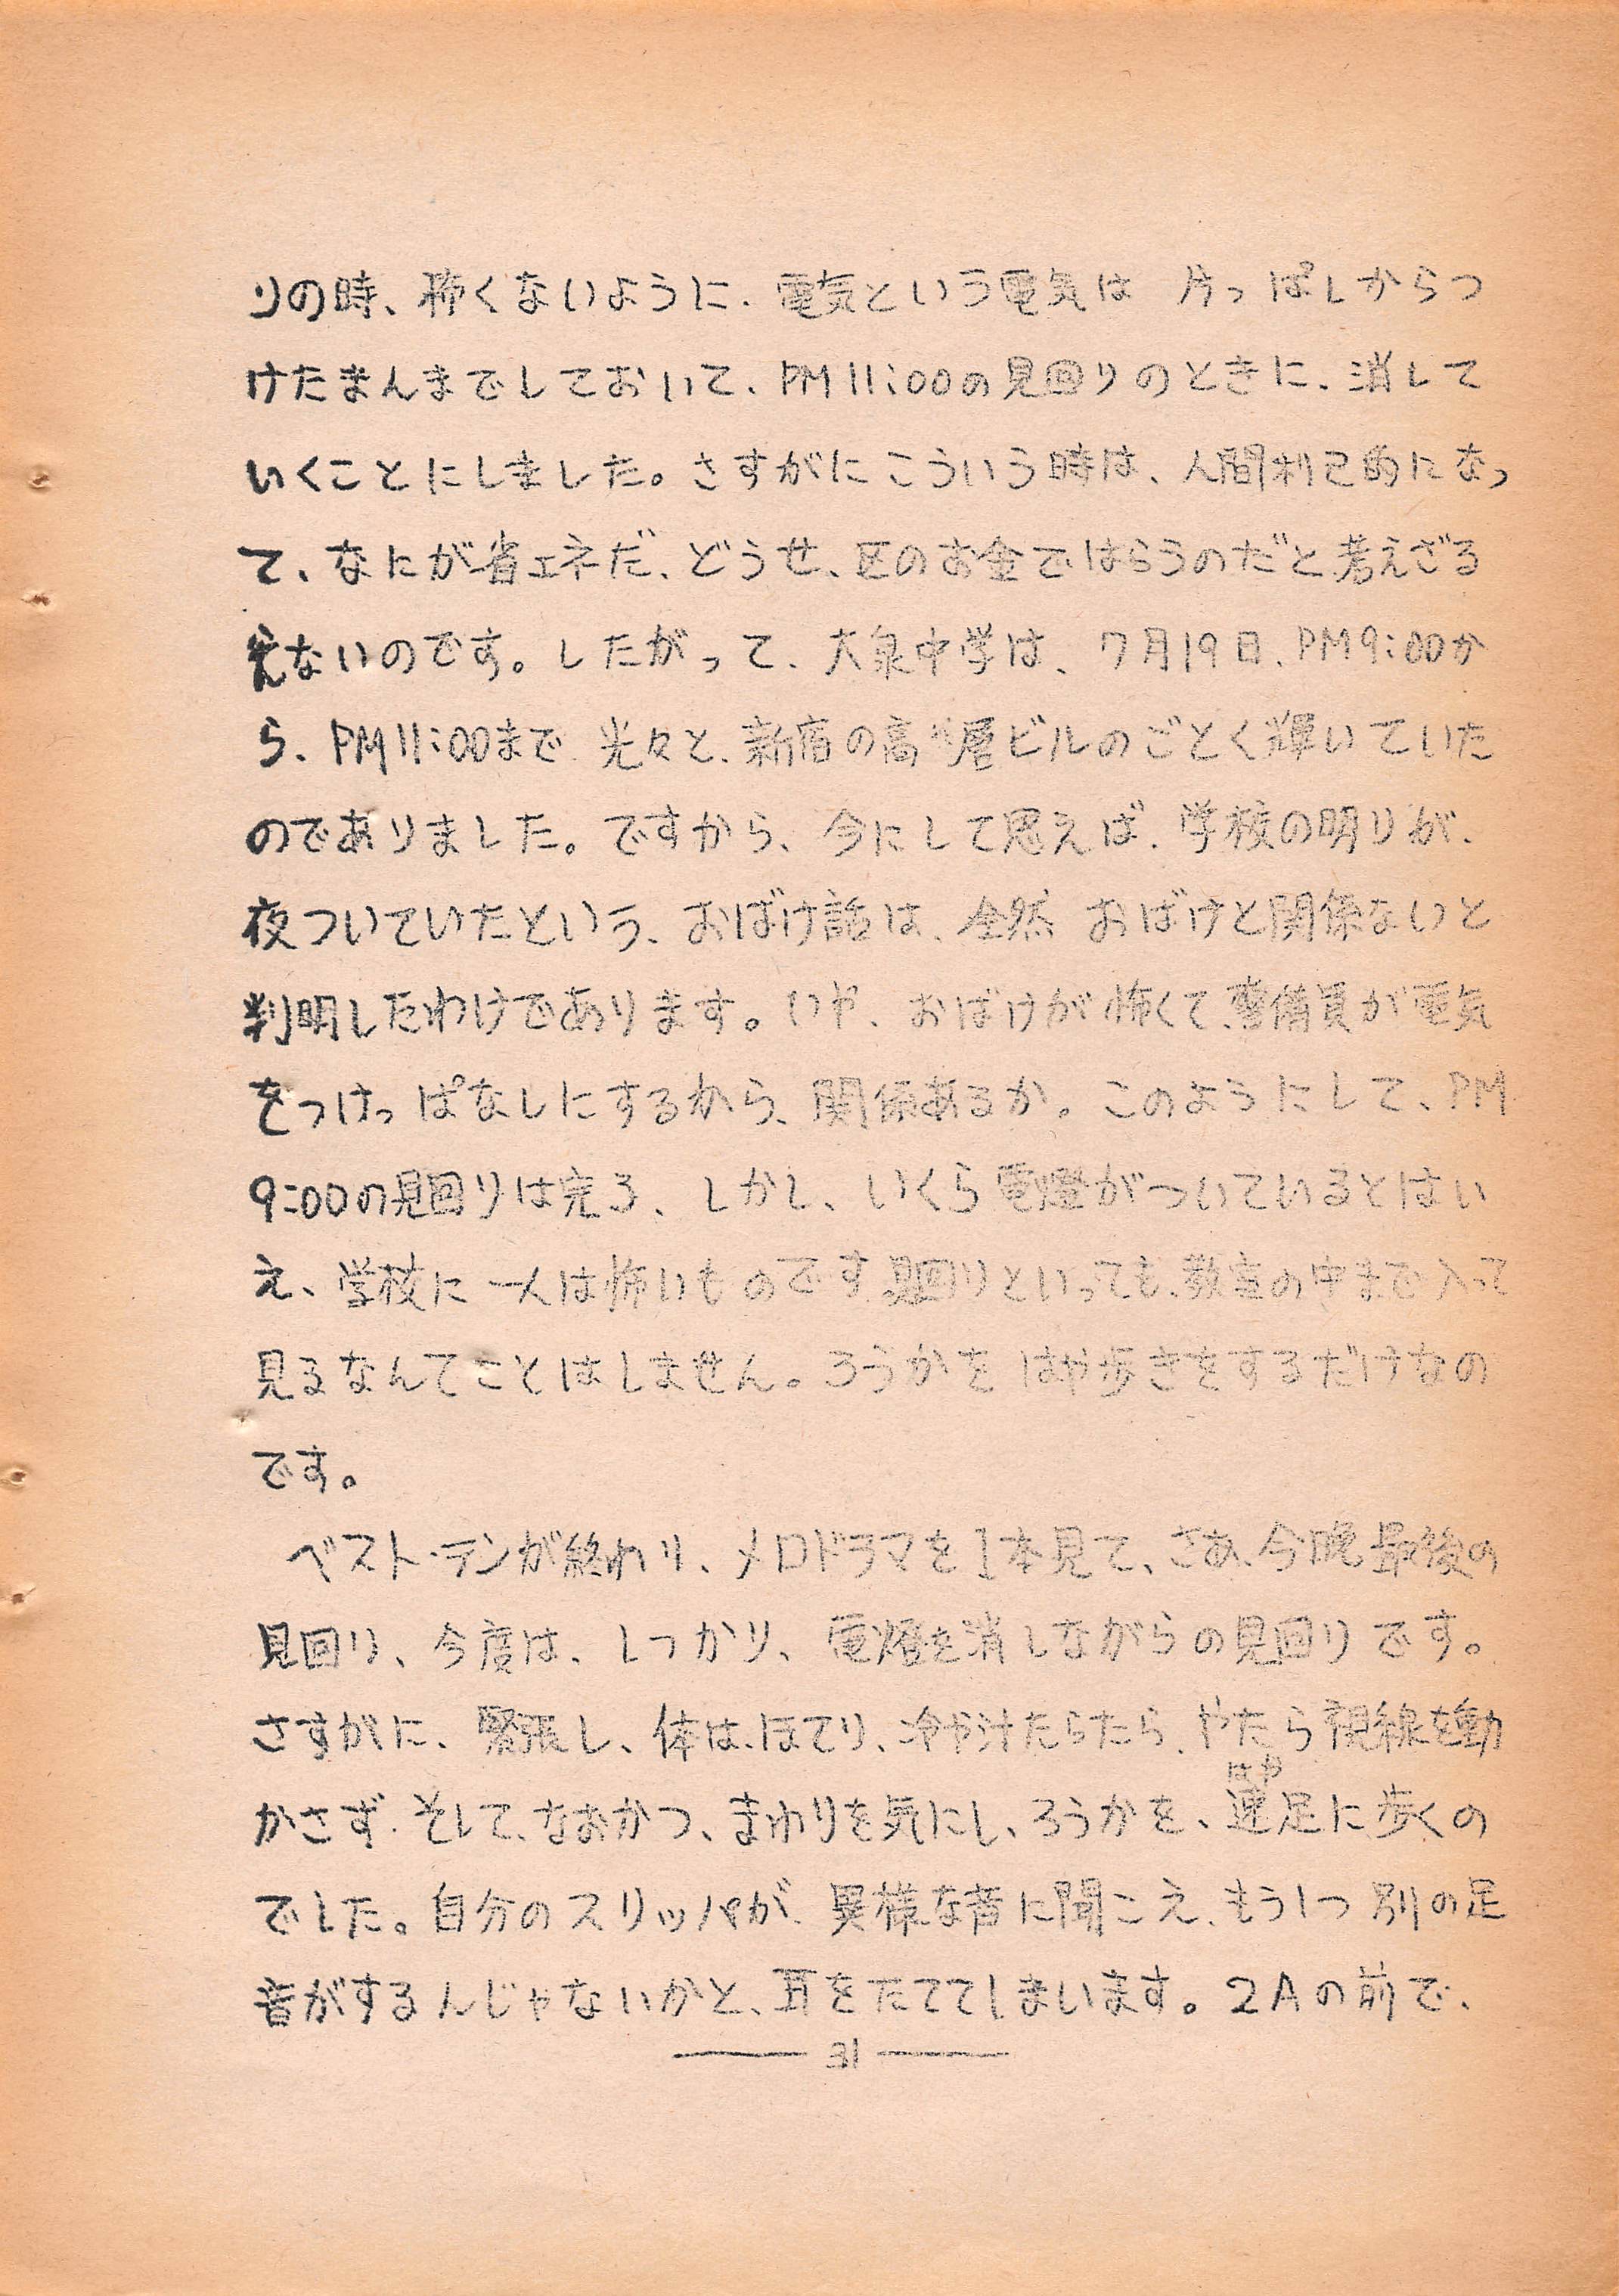 りの時、怖くないように、電気という電気は 片っぱしからつ
けたまんまでしておいて、PM11:00の見回りのときに、消して
いくことにしました。さすがにこういう時は、人間利己的になっ
て、なにが省エネだ、どうせ、区のお金ではらうのだと考えざる
えないのです。したがって、大泉中学は、7月19日、PM9:00か
ら、PM11:00まで 光々と、新宿の高層ビルのごとく輝いていた
のでありました。ですから、今にして思えば、学校の明りが、
夜ついていたという、おばけ話は、全然 おばけと関係ないと
判明したわけであります。いや、おばけが怖くて、警備員が電気
をつけっぱなしにするから、関係あるか。このようにして、PM
9:00の見回りは完る、しかし、いくら電燈がついているとはい
え、学校に一人は怖いものです。見回りといっても、教室の中まで入って
見るなんてことはしません。ろうかを はや歩きをするだけなの
です。
ベスト・テンが終わり、メロドラマを1本見て、さあ、今晩最後の
見回り、今度は、しっかり、電燈を消しながらの見回りです。
さすがに、緊張し、体は、ほてり、冷や汁たらたら、やたら視線を動
かさず、そして、なおかつ、まわりを気にし、ろうかを、速足に歩くの
はや
でした。自分のスリッパが、異様な音に聞こえ、もう1つ 別の足
音がするんじゃないかと、耳をたててしまいます。2Aの前で、
31